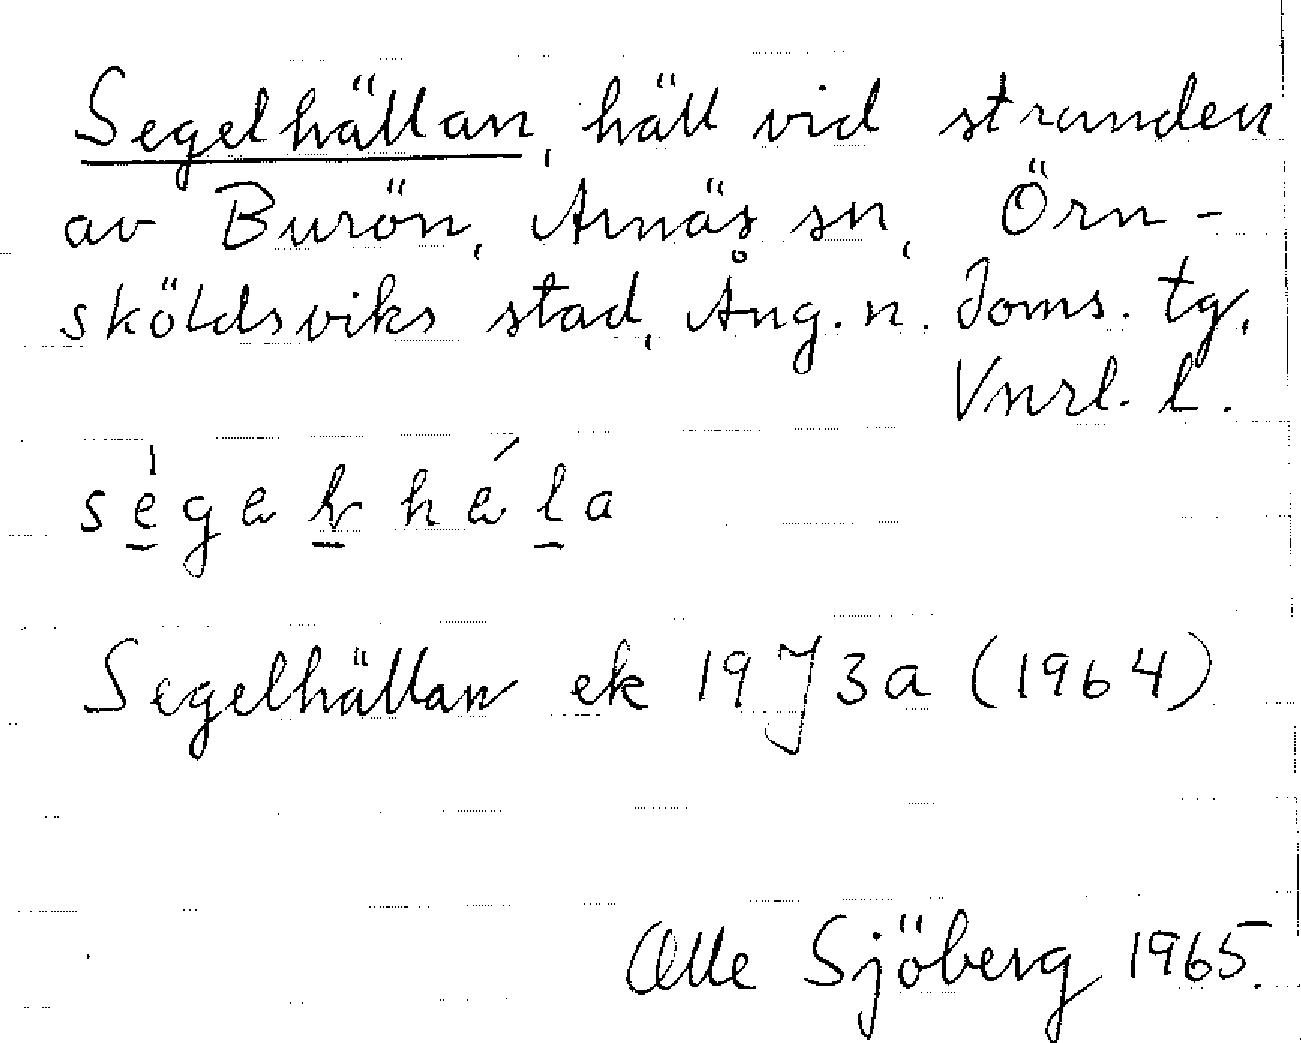 Segelhällan, häll vid stranden
av Burön, Arnäs sn, Örn-
sköldsviks stad, Ång. n. Joms. tg,
Vnrl. l.
Segelhällan ek 19 J 3a (1964)
Olle Sjöberg 1965.